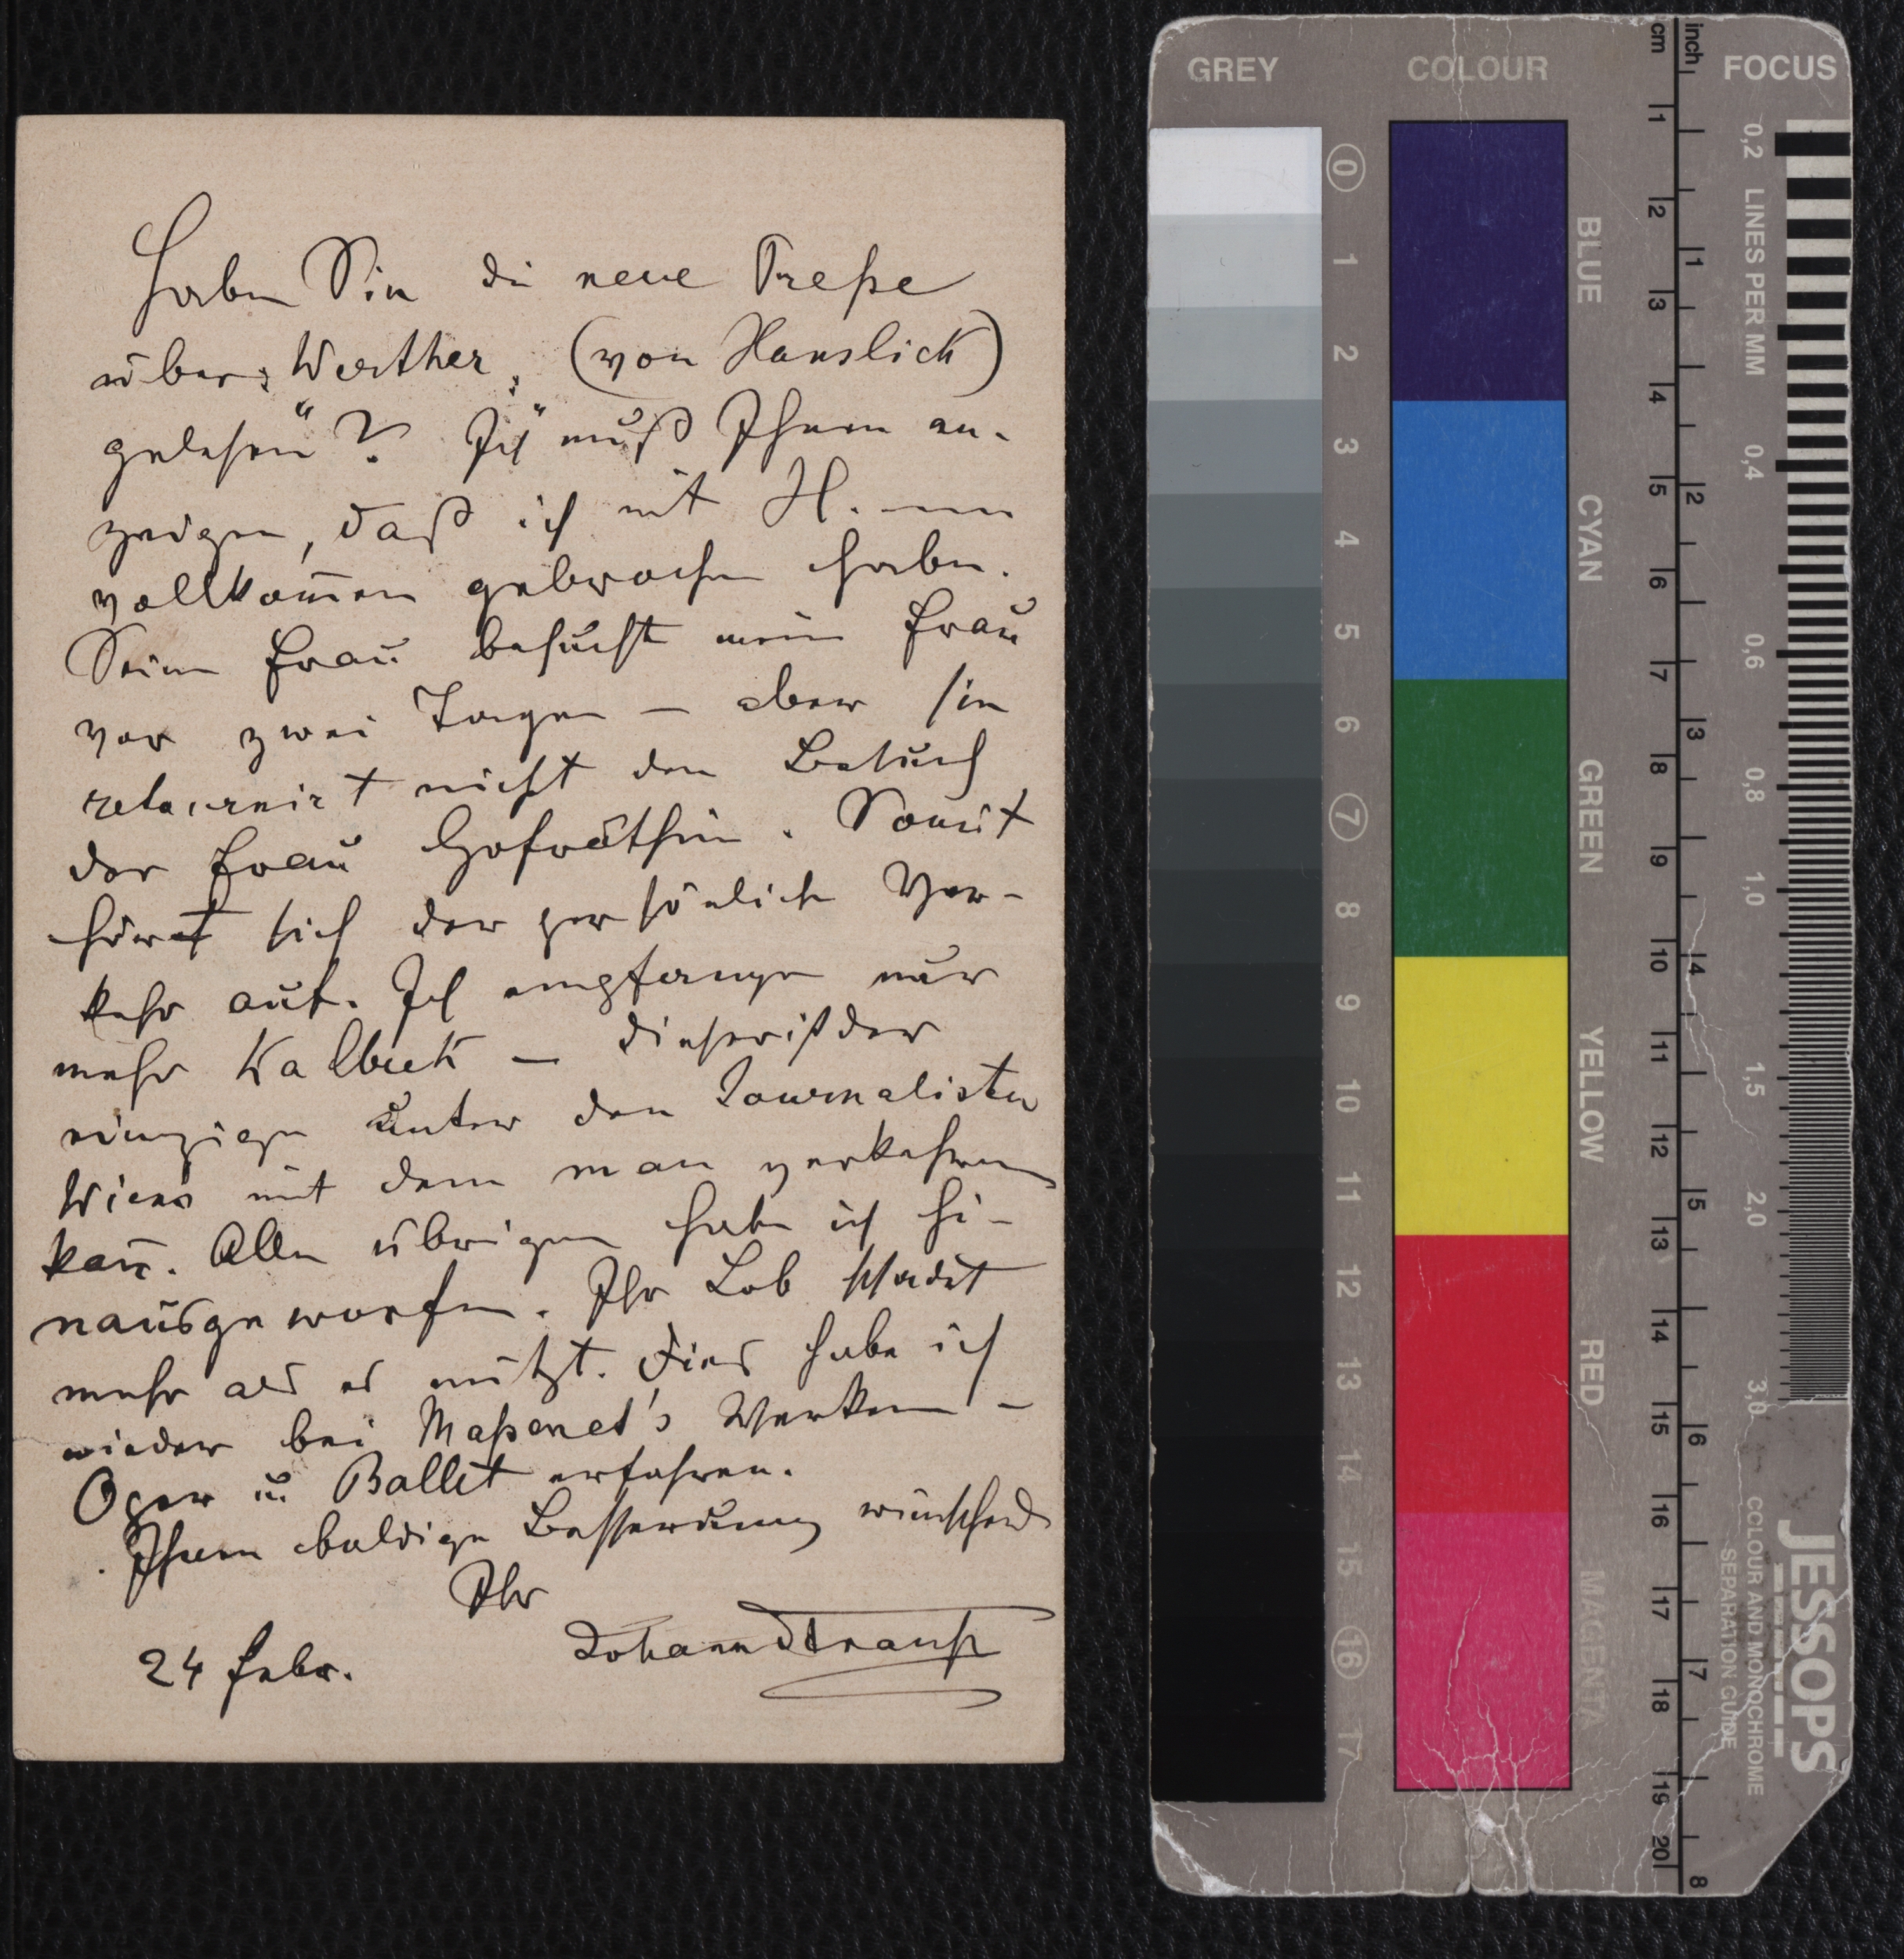 Haben Sie die neue Preße
über „Werther" (von Hanslick)
gelesen"? Ich muß Ihnen an-
zeigen, daß ich mit H. nun
vollkom̅en gebrochen habe.
Seine Frau besucht meine Frau
vor zwei Tagen – aber sie
retournirt nicht den Besuch
der Frau Hofräthin. Somit
hört sich der persönliche Ver-
kehr auf. Ich empfange nur
mehr Kalbeck – dieser ist der
einzige unter den Journalisten
Wiens mit dem man verkehren
kan̅. Alle übrigen habe ich hi-
nausgeworfen. Ihr Lob schadet
mehr als es nützt. Dies habe ich
wieder bei Maßenet's Werken –
Oper u Ballet erfahren.
Ihnen baldige Besserung wünschend
Ihr
Johann Strauß
24 Febr.
GREY
0
1
2
3
4
5
6
7
8
9
10
11
12
13
14
15
16
17
COLOUR
BLUE
CYAN
GREEN
YELLOW
RED
MAGENTA
cm
1
2
3
4
5
6
7
8
9
10
11
12
13
14
15
16
17
18
19
20
inch
1
2
3
4
5
6
7
8
FOCUS
0,2 LINES PER MM
0,4
0,6
0,8
1,0
1,5
2,0
3,0
JESSOPS
COLOUR AND MONOCHROME
SEPARATION GUIDE